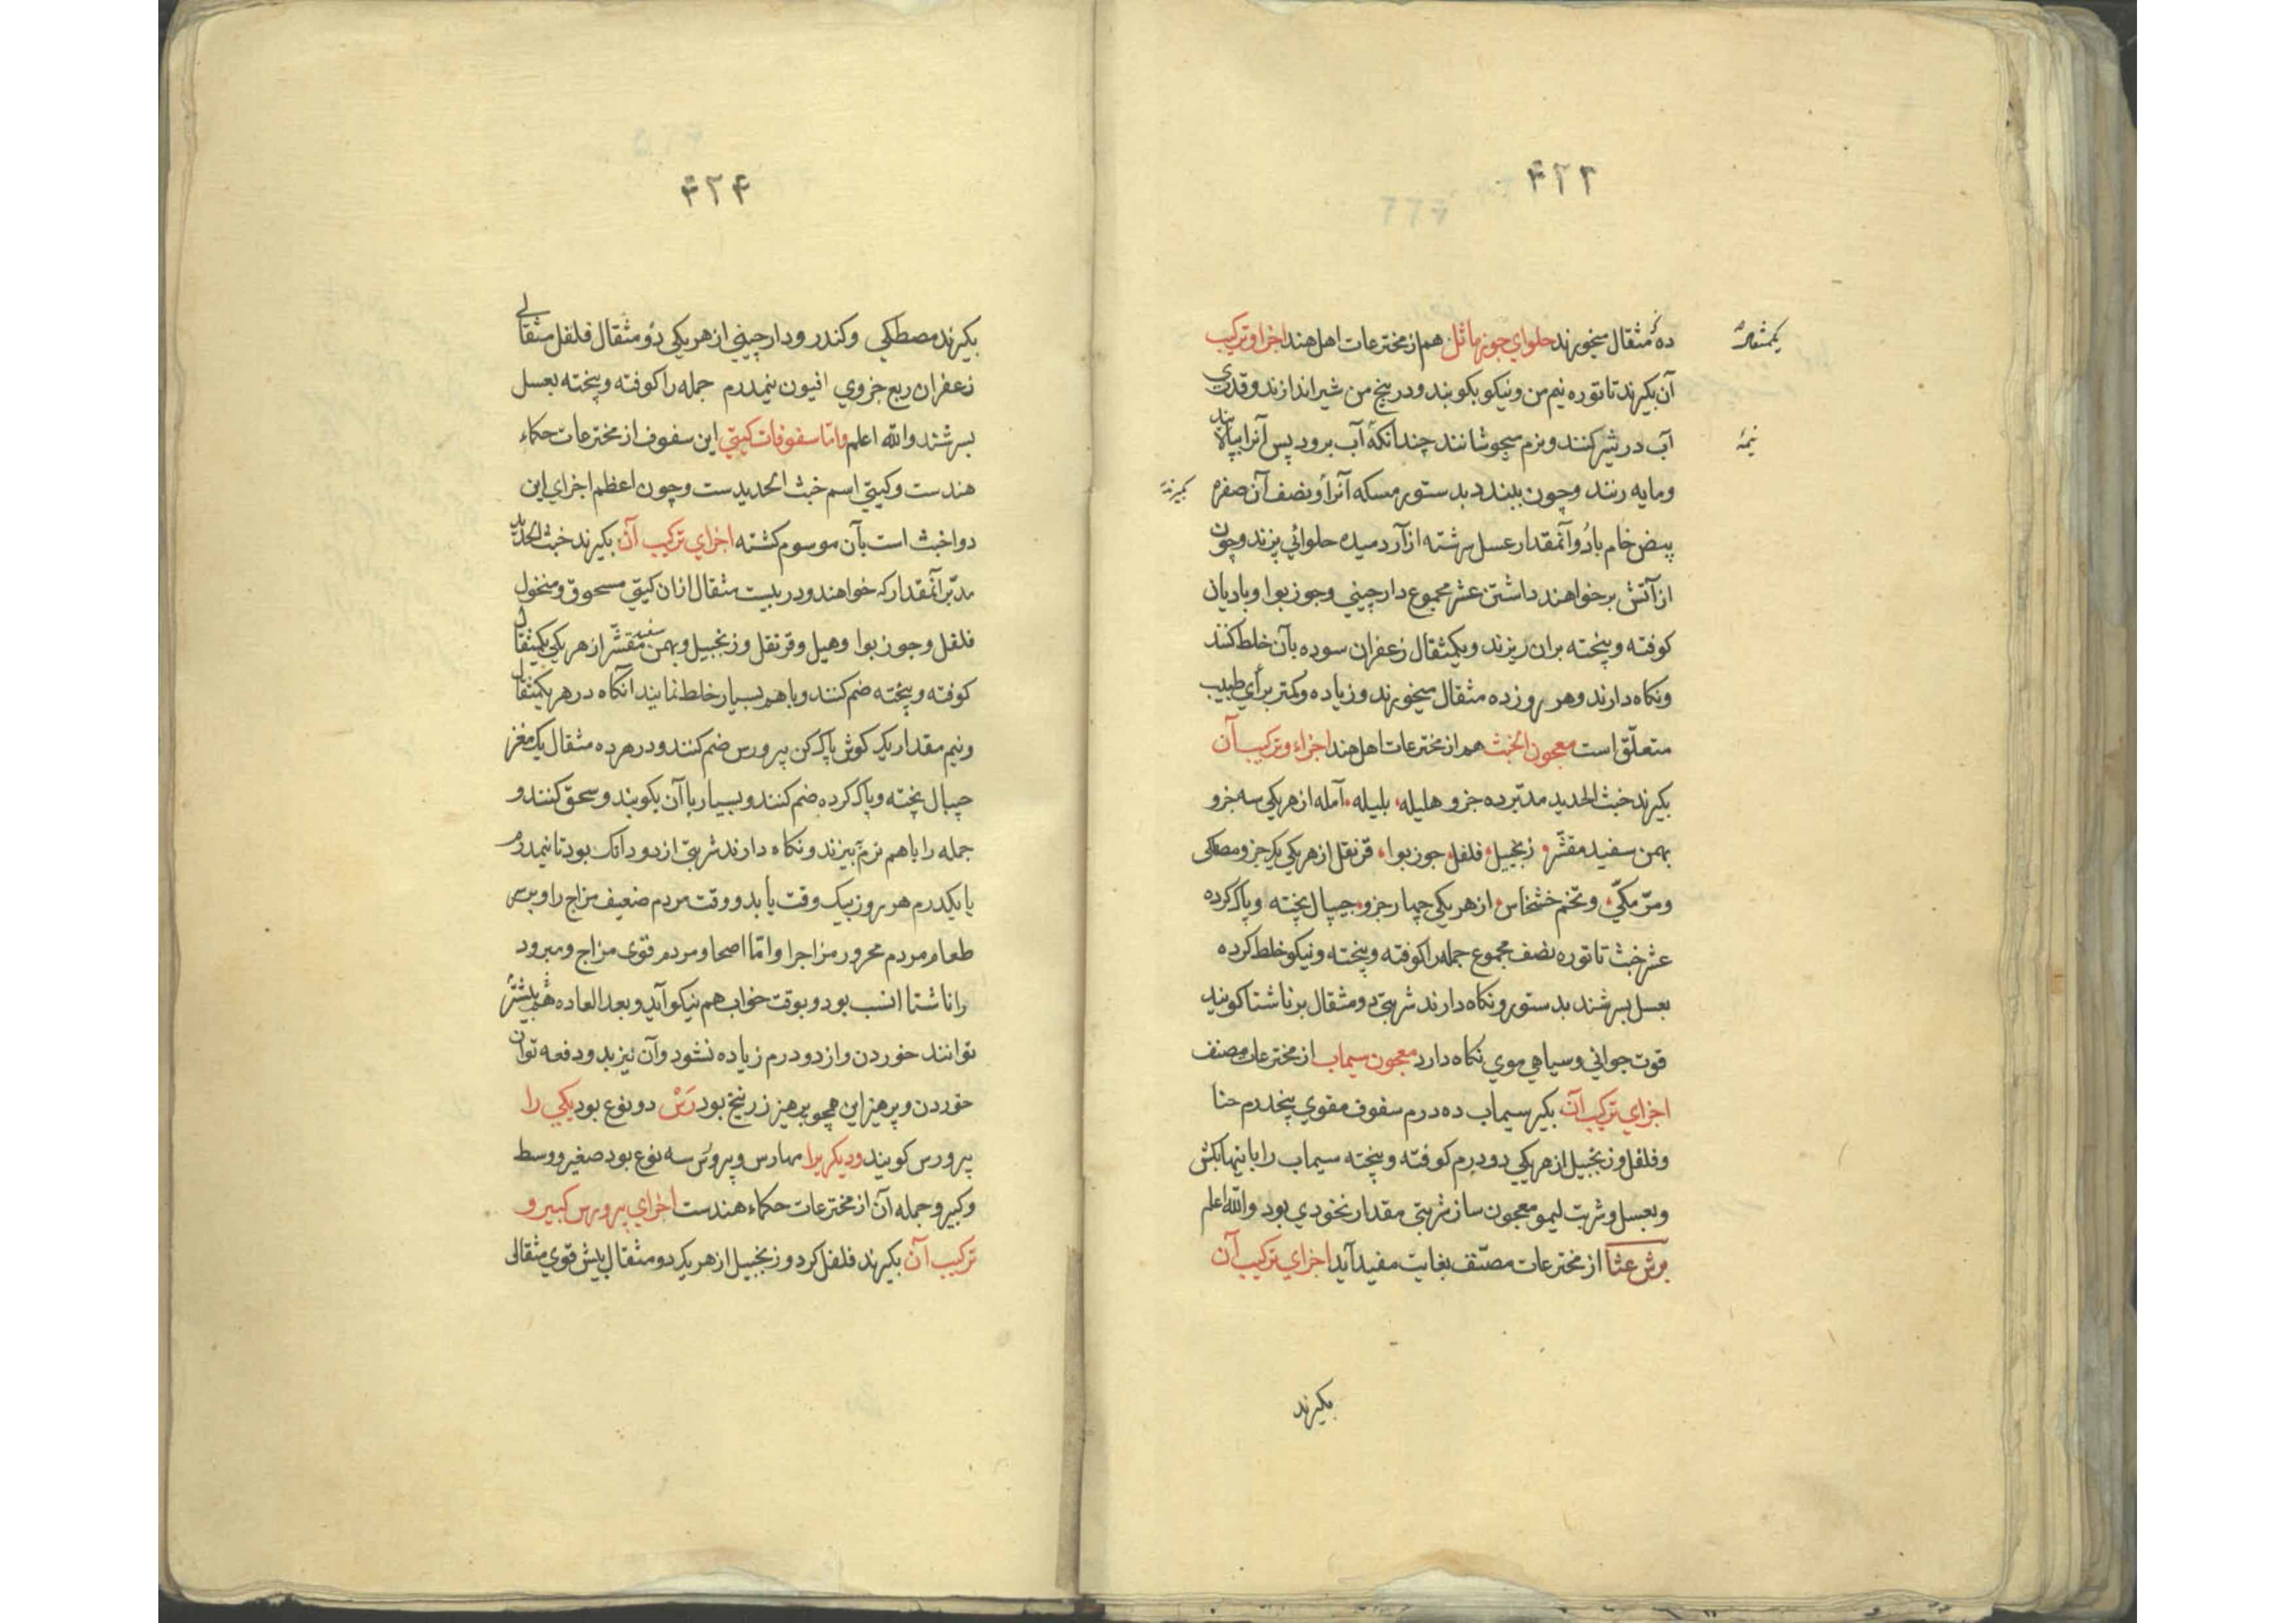 ۴۲۳
ده مثقال میخورند حلوای جوز ماثل هم از مخترعات اهل هند اجزا و ترکیب
آن بکیرند تاتوره نیم من ونیکو بکوبند ودر پنج من شیر اندازند وقدری
آب در شیر کنند وبنرم میجوشانند چندانکه آب برود پس آنرا بپالایند
ومایه زنند وچون ببندد بدستور مسکه آنرا و نصف آن صفره
بیض خام با دو آنمقدار عسل سرشته از آرد میده حلوائی پزند وچون
از آتش برخواهند داشتن عشر مجموع دارچینی وجوز بوا وبادیان
کوفته وبیخته بران ریزند ویکمثقال زعفران سوده بآن خلط کنند
ونکاه دارند وهر روز ده مثقال میخورند وزیاده وکمتر برأی طبیب
متعلّق است معجون الخبث هم از مخترعات اهل هند اجزاء وترکیب آن
بکیرند خبث الحدید مدبّر ده جزو هلیله، بلیله، آمله از هر یکی سه جزو
بهمن سفید مقشّر، زنجبیل، فلفل، جوز بوا، قرنفل از هر یکی یک جزو مصطکی
ومرّ مکّی، وتخم خشخاس، از هر یکی چهار جزو، جیپال پخته و پاک کرده
عشر خبث تاتوره نصف مجموع جمله را کوفته وبیخته ونیکو خلط کرده
بعسل بسرشند بدستور ونکاه دارند شربتی دو مثقال بر ناشتا کویند
قوت جوانی وسیاهی موی نکاه دارد معجون سیماب از مخترعات مصنف
اجزای ترکیب آن بکیر سیماب ده درم سفوف مقوی پنجدرم حنا
وفلفل وزنجبیل از هر یکی دو درم کوفته وبیخته سیماب را با اینها بکش
وبعسل وشربت لیمو معجون ساز شربتی مقدار نخودی بود والله اعلم
برش عثا از مخترعات مصنّف بغایت مفید آید اجزای ترکیب آن
بکیرند
نیمهٔ
بکیرند
۴۲۴
بکیرند مصطکی وکندر ودارچینی از هر یکی دو مثقال فلفل مثقالی
زعفران ربع جزوی افیون نیمدرم جمله را کوفته وبیخته بعسل
بسرشند والله اعلم وامّا سفوفات کیتی این سفوف از مخترعات حکماء
هندست وکیتی اسم خبث الحدیدست وچون اعظم اجزای این
دوا خبث است بآن موسوم کشته اجزای ترکیب آن بکیرند خبث الحدید
مدبّر آنمقدار که خواهند ودر بیست مثقال ازان کیتی مسحوق ومنخول
فلفل وجوز بوا وهیل وقرنفل وزنجبیل وبهمن سفید مقشّر از هر یکی یکمثقال
کوفته وبیخته ضم کنند وباهم بسیار خلط نمایند آنکاه در هر یکمثقال
ونیم مقدار یک کوش پاک کن پرورس ضم کنند ودر هر ده مثقال یک مغز
جیپال پخته وپاک کرده ضم کنند وبسیار با آن بکوبند وسحق کنند و
جمله را باهم نرم بیزند ونکاه دارند شربتی از دو دانک بود تا نیمدرم
یا یکدرم هر روز بیک وقت باید ووقت مردم ضعیف مزاج را وبرسر
طعام مردم محرور مزاجرا وامّا اصحا ومردم قوی مزاج ومبرود
را ناشتا انسب بود وبوقت خواب هم نیکو آید وبعد العاده هم بیشتر
توانند خوردن واز دو درم زیاده نشود وآن نیز بدو دفعه توان
خوردن وپرهیز این همچو پرهیز زرنیخ بود رَسْ دو نوع بود یکی را
پرورس کویند ودیکریرا مهارس وپرورس سه نوع بود صغیر ووسط
وکبیر وجمله آن از مخترعات حکماء هندست اجزای پرورس کبیر و
ترکیب آن بکیرند فلفل کرد وزنجبیل از هر یک دو مثقال بیش قوی مثقالی